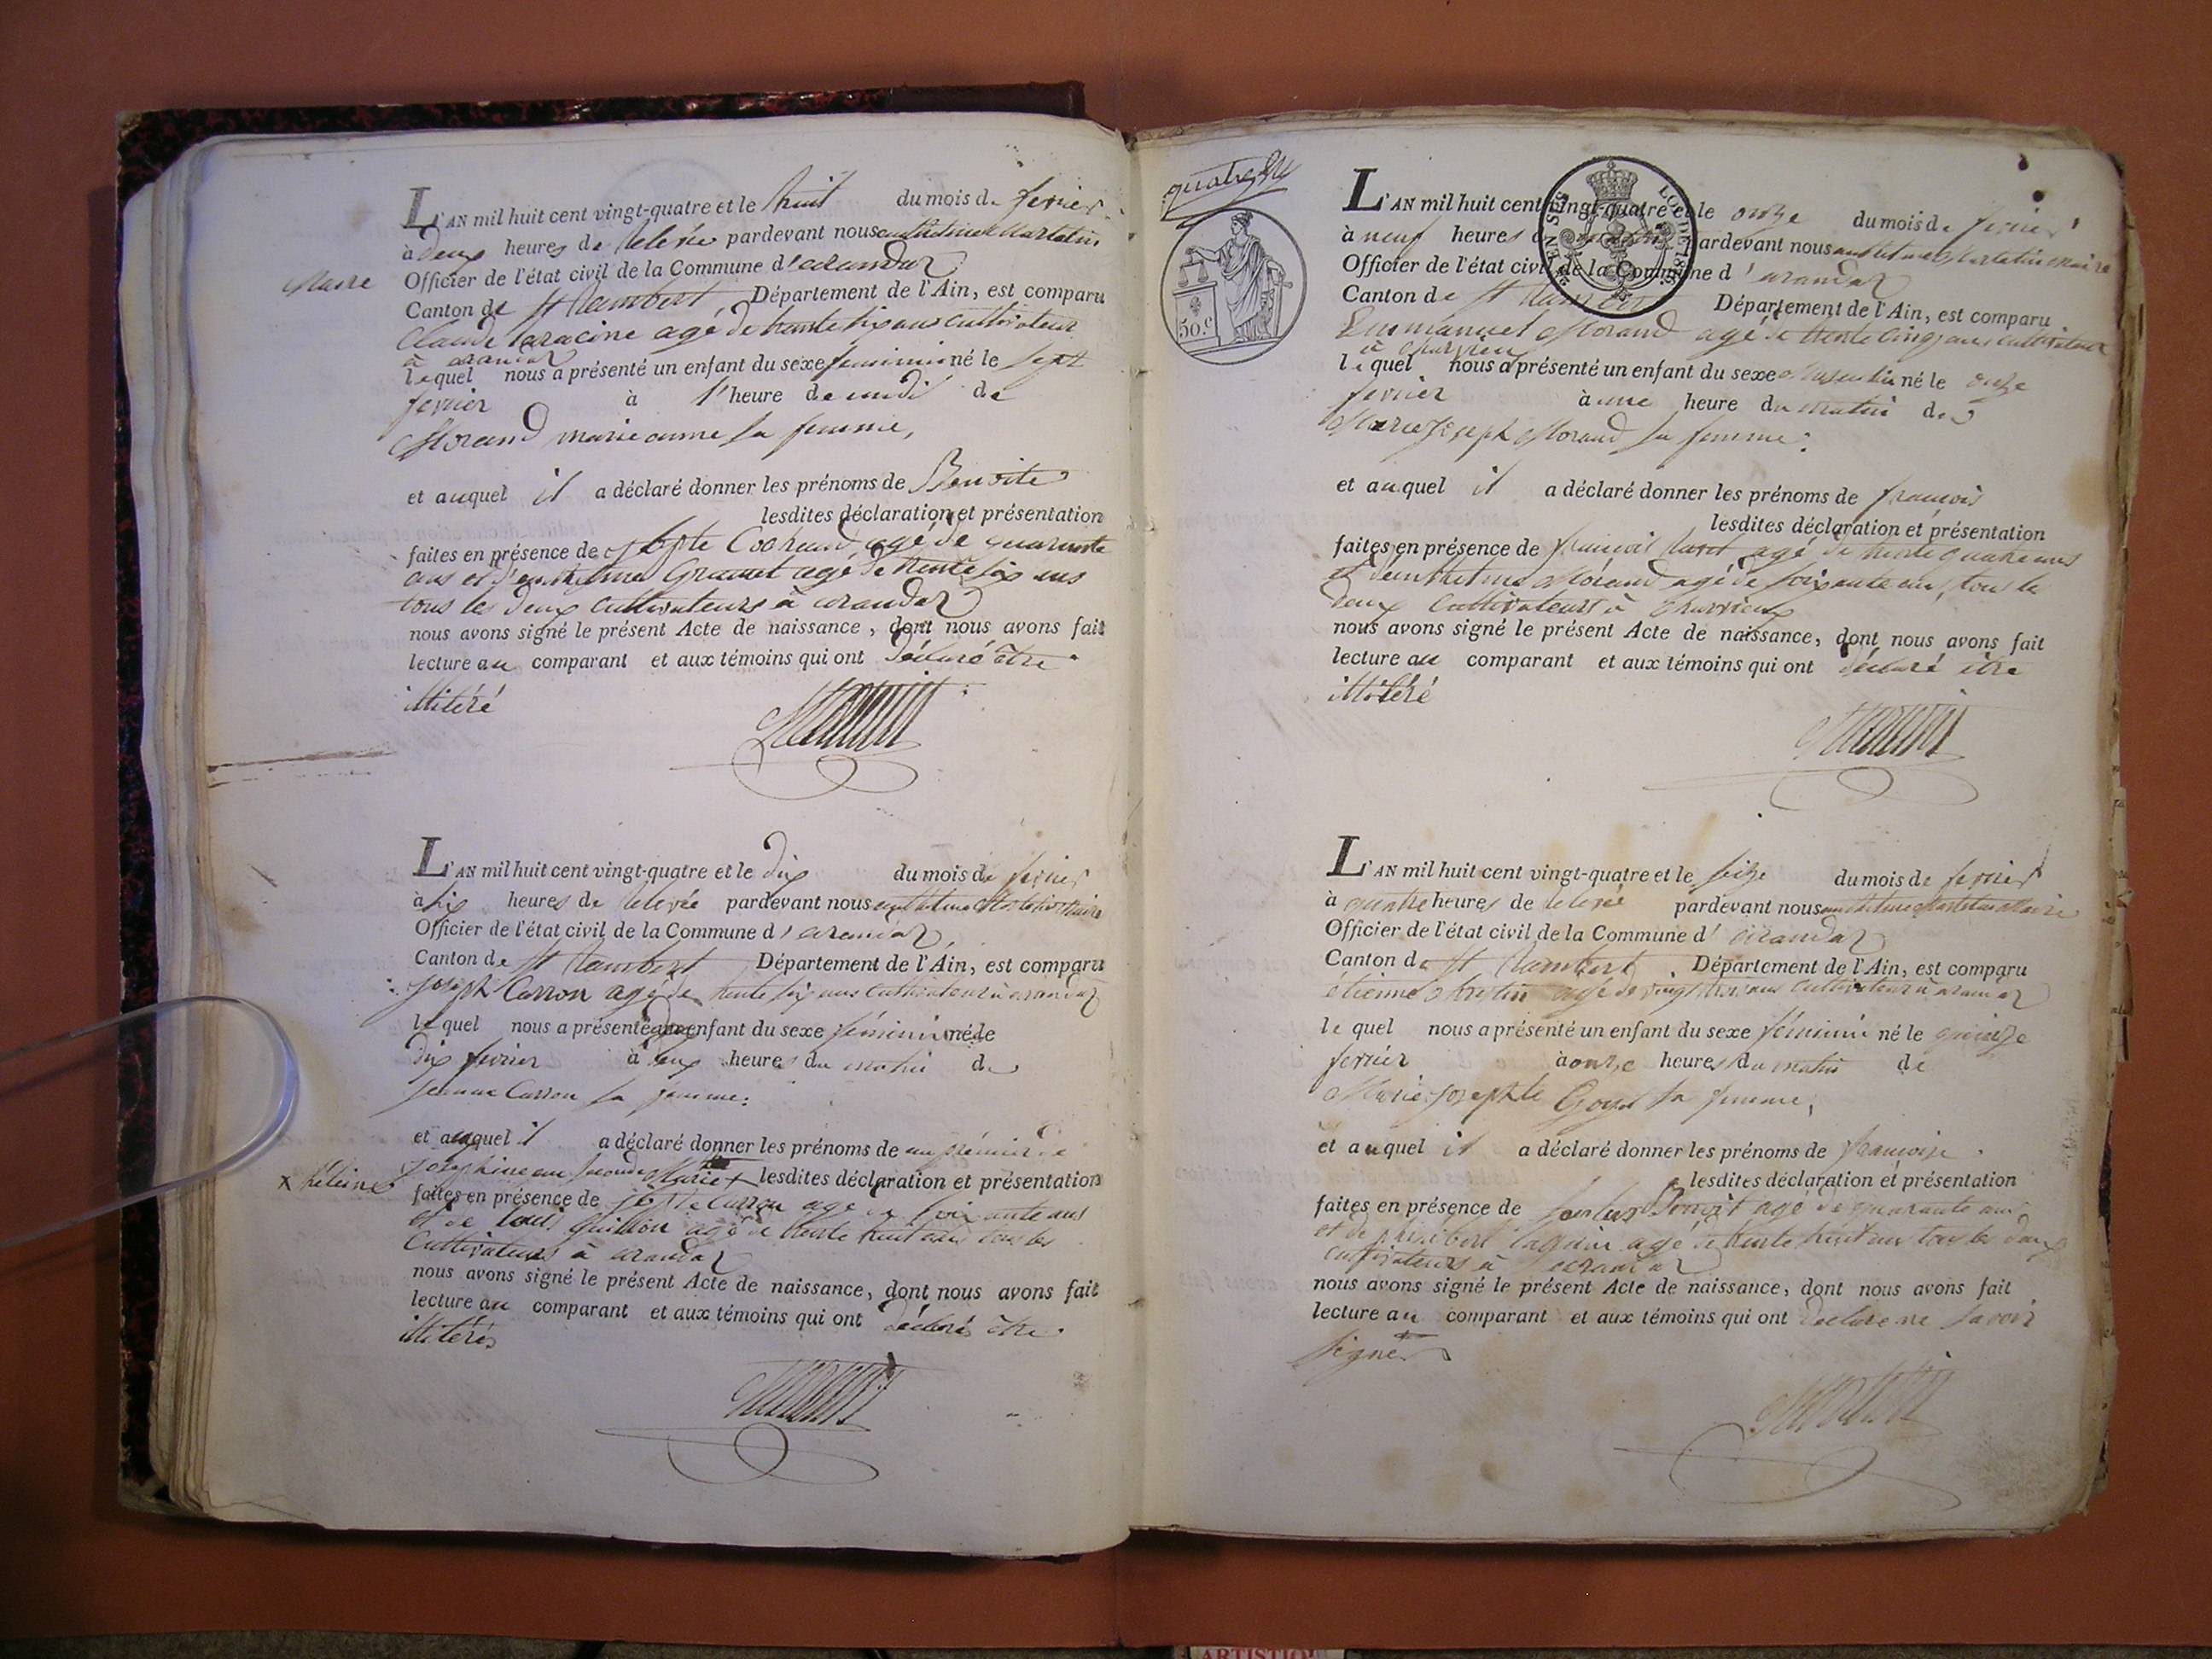 L'AN mil huit cent vingt-quatre et le huit du mois de fevrier
à deux heures de relevée pardevant nous anthelme Martin
Maire
Officier de l'état civil de la Commune d'arandaz
Canton de St Rambert Département de l'Ain, est comparu
Claude Laracine agé de trente six ans cultivateur
à arandaz
lequel nous a présenté un enfant du sexe feminin né le sept
fevrier à l'heure de midi de
Morand marie anne sa femme,
et auquel il a déclaré donner les prénoms de Benoite
lesdites déclaration et présentation
faites en présence de agé de quarante
ans et d'anthelme agé de trente six ans
tous les deux cultivateurs à arandaz
nous avons signé le présent Acte de naissance, dont nous avons fait
lecture au comparant et aux témoins qui ont déclaré être
illitéré
L'AN mil huit cent vingt-quatre et le dix du mois de fevrier
à six heures de relevée pardevant nous anthelme Martin Maire
Officier de l'état civil de la Commune d'arandaz
Canton de St Rambert Département de l'Ain, est comparu
joseph Carron agé de trente six ans cultivateur à arandaz
lequel nous a présenté enfant du sexe féminin né le
dix fevrier à deux heures du matin de
jeanne Carron sa femme:
et auquel il a déclaré donner les prénoms de au prémier de
josephine au seconde Marie x lesdites déclaration et présentation
x héleine
faites en présence de Carron agé de soixante ans
et de louis Guillon agé de trente huit ans tous les
cultivateurs à arandaz
nous avons signé le présent Acte de naissance, dont nous avons fait
lecture au comparant et aux témoins qui ont déclaré être
illitérés
quatre
50.c
L'AN mil huit cent vingt-quatre et le onze du mois de fevrier
à neuf heures pardevant nous anthelme Martin maire
Officier de l'état civil de la Commune d'arandaz
Canton de St Rambert Département de l'Ain, est comparu
Emmanuel Morand agé de trente cinq ans cultivateur
à
lequel nous a présenté un enfant du sexe Masculin né le onze
fevrier à une heure du matin de
Marie Joseph Morand sa femme:
et auquel il a déclaré donner les prénoms de françois
lesdites déclaration et présentation
faites en présence de françois agé de trente quatre ans
et d'anthelme Morand agé de soixante ans, tous les
deux cultivateurs à
nous avons signé le présent Acte de naissance, dont nous avons fait
lecture au comparant et aux témoins qui ont déclaré être
illitéré
L'AN mil huit cent vingt-quatre et le seize du mois de fevrier
à quatre heures de relevée pardevant nous anthelme Martin Maire
Officier de l'état civil de la Commune d'arandaz
Canton de St Rambert Département de l'Ain, est comparu
étienne agé de vingt trois ans cultivateur à arandaz
lequel nous a présenté un enfant du sexe féminin né le quinze
fevrier à onze heures du matin de
Marie josephte Goyet sa femme,
et auquel il a déclaré donner les prénoms de françoise
lesdites déclaration et présentation
faites en présence de Benoit agé de quarante ans
et de philibert agé de trente huit ans tous les deux
cultivateurs à arandaz
nous avons signé le présent Acte de naissance, dont nous avons fait
lecture au comparant et aux témoins qui ont déclaré ne savoir
signer
ARTISTIQ